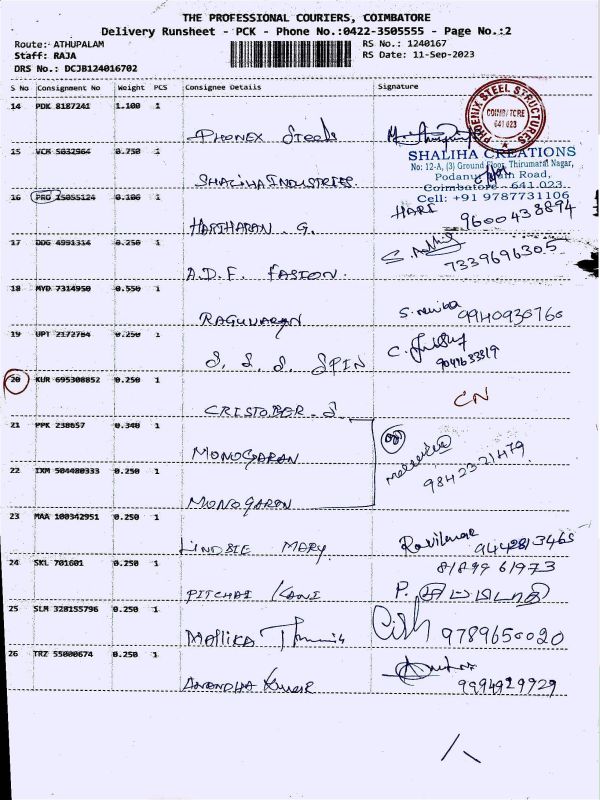 THE PROFESSIONAL COURIERS, COIMBATORE
Delivery Runsheet - PCK - Phone No.:0422-3505555 - Page No.:2
Route: ATHUPALAM RS No.: 1240167
Staff: RAJA RS Date: 11-Sep-2023
DRS No.: DCJB124016702
S No Consignment No Weight PCS Consignee Details Signature
14 PDK 8187241 1.100 1
PHONEX Steels
PHOENIX STEEL STRUCTURES
COIMBATORE
641 023
15 VCM 5032964 0.750 1
SHALIHA INDUSTRIES.
SHALIHA CREATIONS
No: 12-A, (3) Ground Floor, Thirumarai Nagar,
Road,
Coimbatore - 641 023.
Cell: +91 9787731106
16 PRO 15055124 0.100 1
HARIHARAN . G. HARI 9600438894
17 DDG 4991314 0.250 1
A.D.F. FASION. 7339696305
18 MYD 7314950 0.550 1
RAGUVARAN 9940930760
19 UPT 2172784 0.250 1
S. S. S. SPIN
20 KUR 695308852 0.250 1
CRISTOBER . S. CN
21 PPK 238657 0.340 1
MONOGARAN
22 IXM 504480333 0.250 1
MONOGARAN 98423-21479
23 MAA 100342951 0.250 1
LINDSIE MARY 9442813465
24 SKL 701601 0.250 1
PITCHAI KANI 81899 61973
25 SLM 328155796 0.250 1
MALLIKA 9789650020
26 TRZ 55000674 0.250 1
ANANDHA Kumar 9994929929